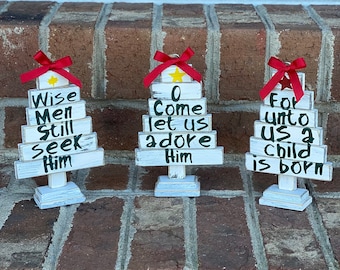 Wise
Men
Still
seek
Him
O
Come
let us
adore
Him
For
unto
us a
child
is born